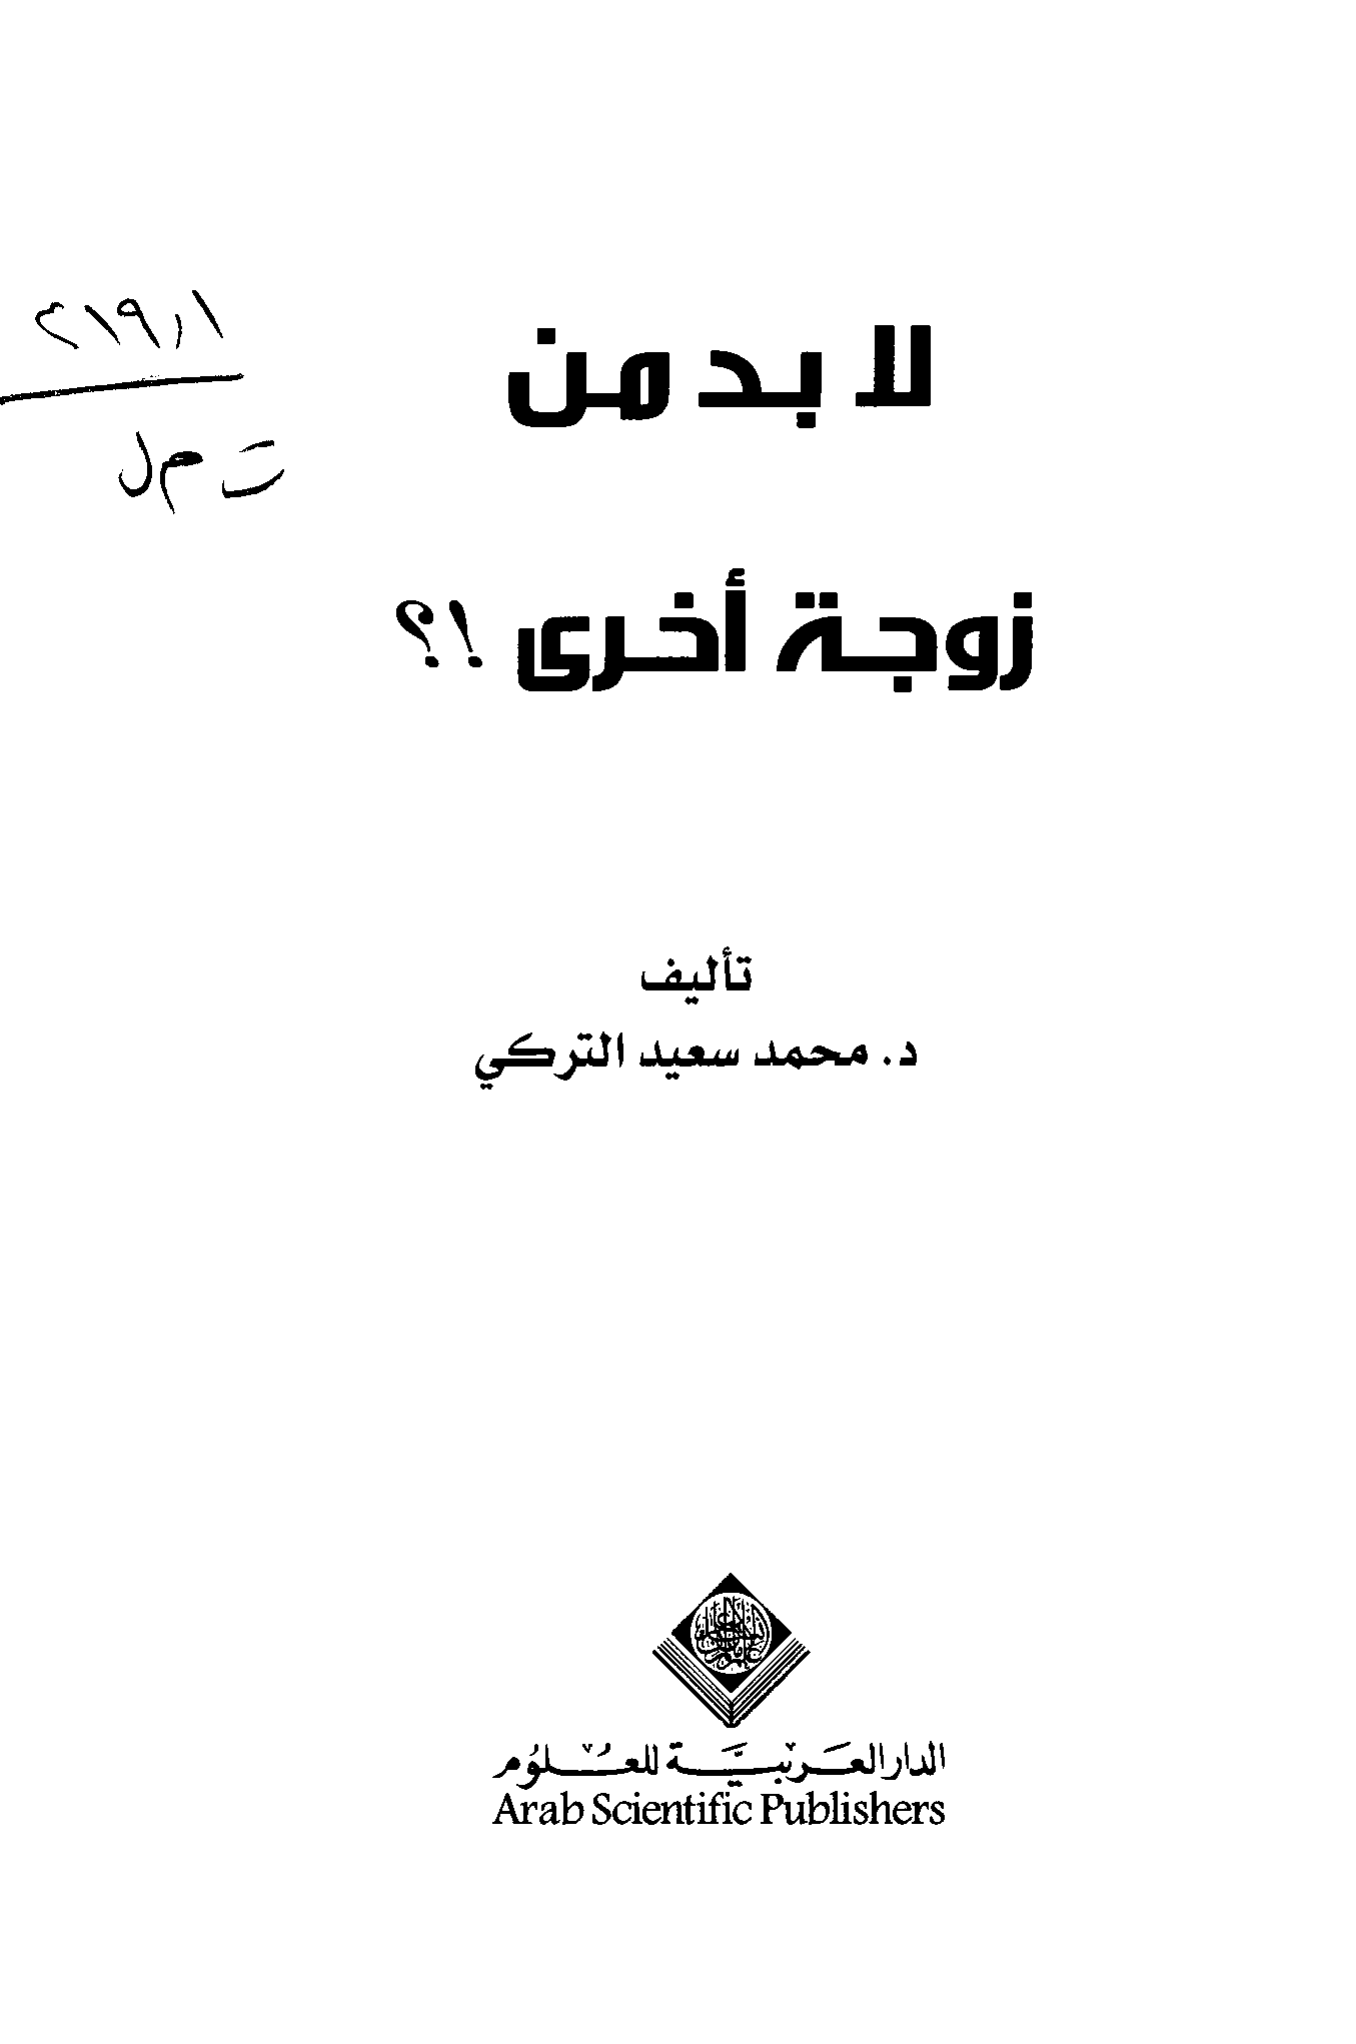 ٢١٩٫١
ت م ل
لا بد من
زوجة أخرى !؟
تأليف
د. محمد سعيد التركي
الدار العربية للعلوم
Arab Scientific Publishers